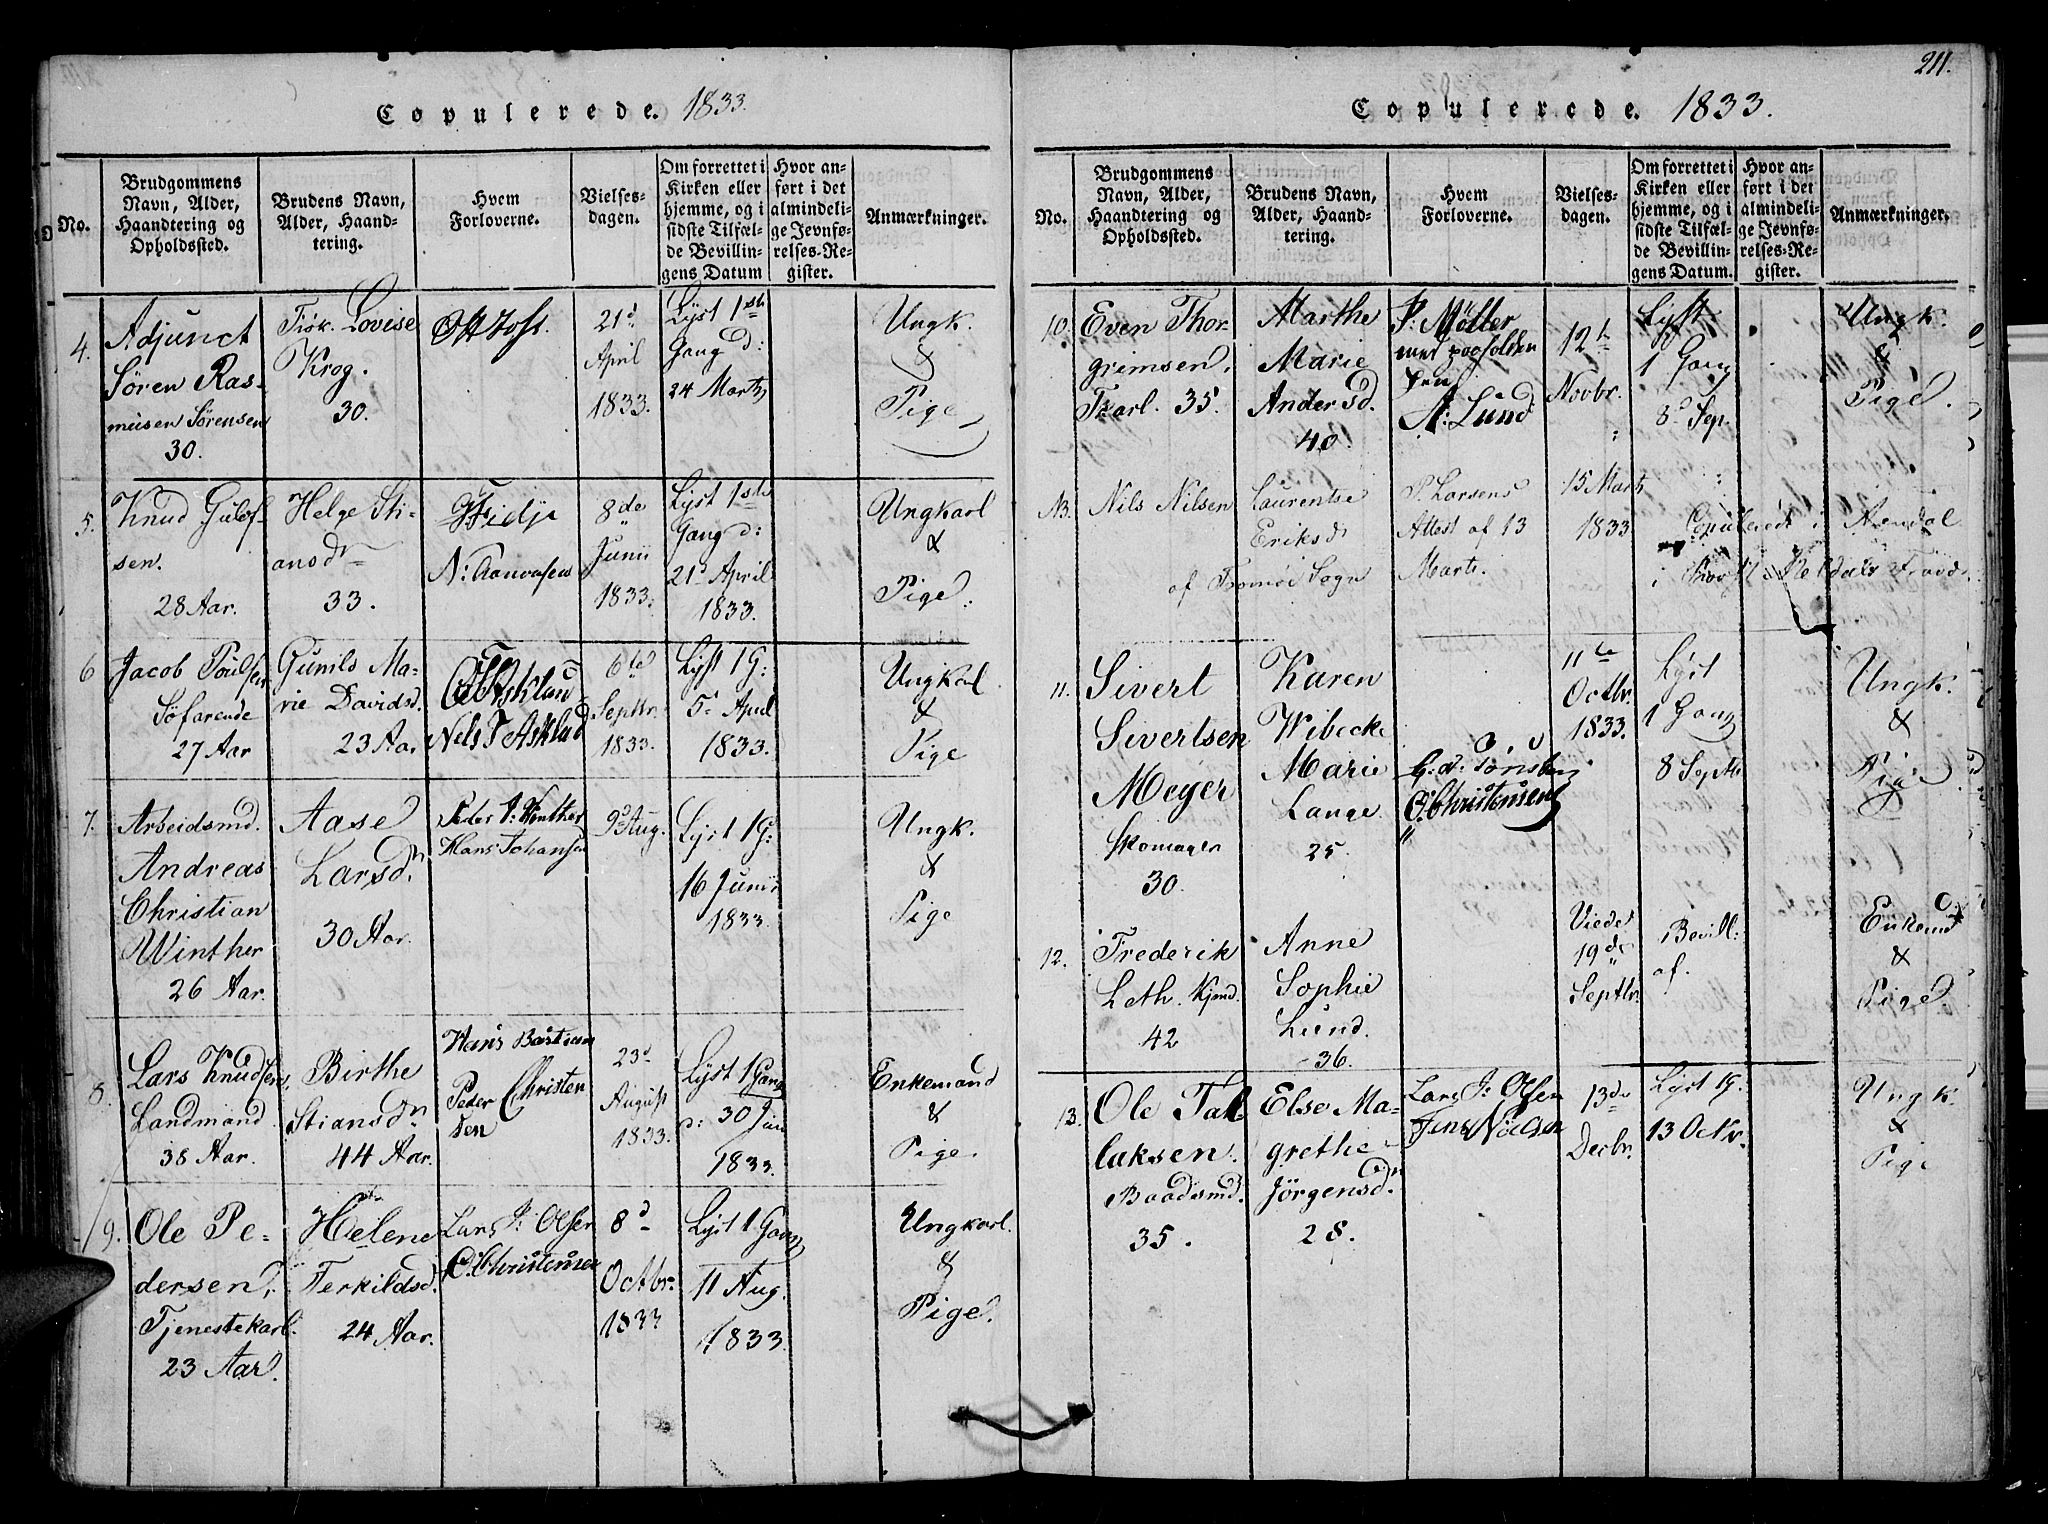 Copulerede. 1833.
No.
Brudgommens
Navn, Alder,
Haandtering og
Opholdssted.
Brudens Navn,
Alder, Haand-
tering.
Hvem
Forloverne.
Vielses-
dagen.
Om forrettet i
Kirken eller
hjemme, og i
sidste Tilfæl-
de Bevillin-
gens Datum
Hvor an-
ført i det
almindeli-
ge Jevnfø-
relses-Re-
gister.
Anmærkninger.
4.
Adjunct
Sören Ras-
musen Sörensen
30.
Lovise
Krog.
30.
21d
April
1833.
Lyst 1ste
Gang d:
24 Marts
Ungk.
&
Pige
5.
Knud Gulof-
sen.
28 Aar.
Helge Sti-
ansdr
33.
8de
Junii
1833.
Lyst 1ste
Gang d:
21d April
1833.
Ungkarl
&
Pige.
6
Jacob Poulsen
Söfarende
27 Aar
Gunils Ma-
rie Davidsd.
23 Aar
Nels T Asklad
6te
Septbr.
1833.
Lyst 1 G:
5 April
1833.
Ungkarl
&
Pige
7.
Arbeidsmd.
Andreas
Christian
Winther
26 Aar.
Aase
Larsdr.
30 Aar.
Peder A: Winther
Hans Johansen
9d Aug.
Lyst 1 G:
16 Junii
1833.
Ungk.
&
Pige
8.
Lars Knudsen,
Landmand.
38 Aar.
Birthe
Stiansdr
44 Aar.
Hans Bastian
Peder Christen
sen
23d
August
1833.
Lyst 1 Gang
d: 30 Jun
1833.
Enkemand
&
Pige.
9.
Ole Pe-
dersen,
Tjenestekarl.
23 Aar.
Helene
Terkildsd.
24 Aar.
Lars J: Olsen
O: Christensen
8d
Octbr.
1833
Lyst 1 Gang
11 Aug.
1833.
Ungkarl.
&
Pige.
211.
Copulerede. 1833.
No.
Brudgommens
Navn, Alder,
Haandtering og
Opholdssted.
Brudens Navn,
Alder, Haand-
tering.
Hvem
Forloverne.
Vielses-
dagen.
Om forrettet i
Kirken eller
hjemme, og i
sidste Tilfæl-
de Bevillin-
gens Datum.
Hvor an-
ført i det
almindeli-
ge Jevnfø-
relses-Re-
gister.
Anmærkninger.
10.
Even Thor-
grimsen.
35.
Marthe
Marie
Andersd.
40.
P: Møller
med
A: Lund
12te
Novbr.
Lyst
1 Gang
8d Sep.
Ungk.
&
Pige.
13.
Nils Nilsen
Laurentse
Eriksdr
af Tromöe Sogn
P. Larsens
Attest af 13
Marts.
15 Marts
1833
Copuleret i Arendal
i
11.
Sivert
Sivertsen
Meyer
Skomager
30.
Karen
Wibecke
Marie
Lange
25.
G: A: Tönsberg
O: Christensen
11te
Octbr.
1833.
Lyst
1 Gang
8 Septb.
Ungk.
&
Pige
12.
Frederik
Leth. Kjmd.
42
Anne
Sophie
Lund.
36.
Viede
19de
Septbr.
Bevill:
af.
Enkemd
&
Pige.
13.
Ole Tal-
laksen.
Baadsmd.
35.
Else Ma-
grethe
Jörgensdr.
28.
Lars J: Olsen
Jens Nielsen
13de
Decbr.
Lyst 1 G.
13 Octbr.
Ungk.
&
Pige